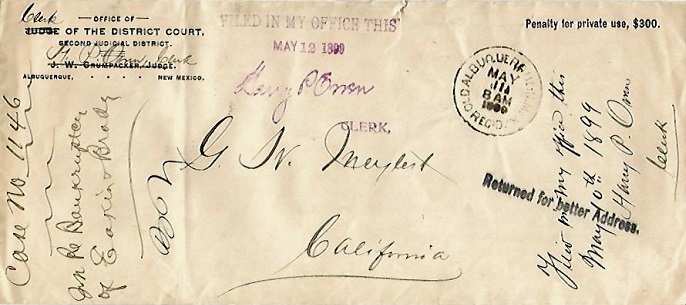 Clerk
— OFFICE OF —
JUDGE OF THE DISTRICT COURT.
SECOND JUDICIAL DISTRICT.
H. P. Owen, Clerk
J. W. CRUMPACKER, JUDGE.
ALBUQUERQUE, . . . . . NEW MEXICO.
FILED IN MY OFFICE THIS
MAY 12 1899
Harry P. Owen
CLERK.
Penalty for private use, $300.
OLD ALBUQUERQUE
MAY
11
8 AM
1899
REC'D.
G. W.
California
Returned for better Address.
Case No 1146
In Re Bankruptcy
of Eakin & Brady
Filed in my office this
May 10th 1899
Harry P. Owen
Clerk